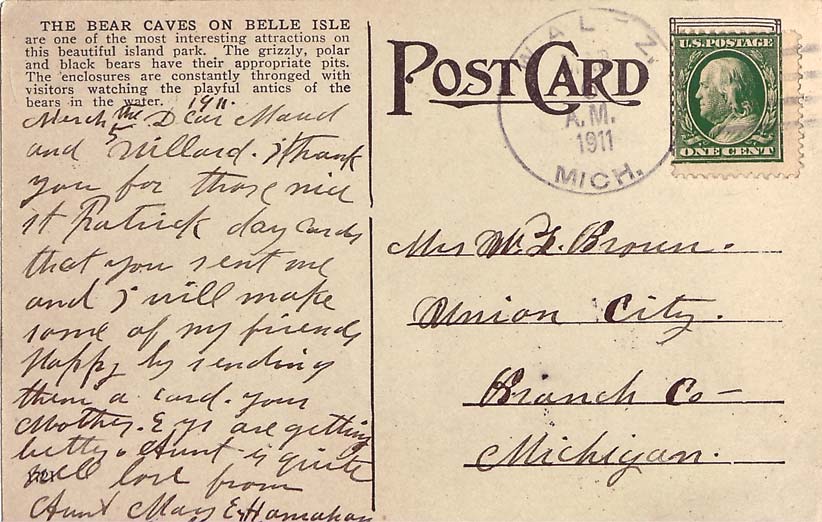 THE BEAR CAVES ON BELLE ISLE
are one of the most interesting attractions on
this beautiful island park. The grizzly, polar
and black bears have their appropriate pits.
The enclosures are constantly thronged with
visitors watching the playful antics of the
bears in the water. 1911.
March the 5 Dear Maud
and Willard. i thank
you for those nice
st Patrick day cards
that you sent me
and i will make
some of my friends
Happy by sending
them a card. your
Mother. Eys are getting
betty. Aunt is quite
well love from
Aunt Mary E Hanahan
POST CARD
WALTZ.
A.M.
1911
MICH.
U.S. POSTAGE
ONE CENT
Mrs W. Brown.
Union City.
Branch Co—
Michigan.